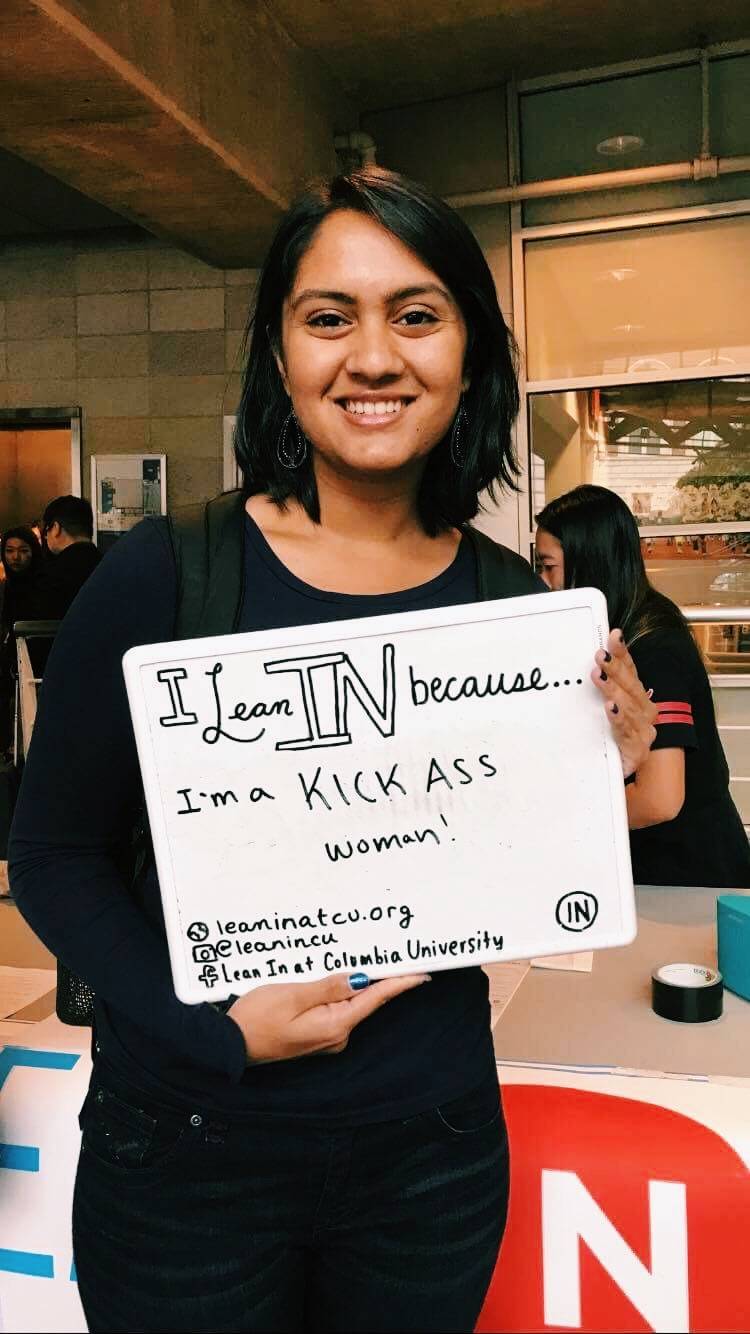 I Lean IN because...
I'm a KICK ASS
woman!
leaninatcu.org
@leanincu
Lean In at Columbia University
IN
N